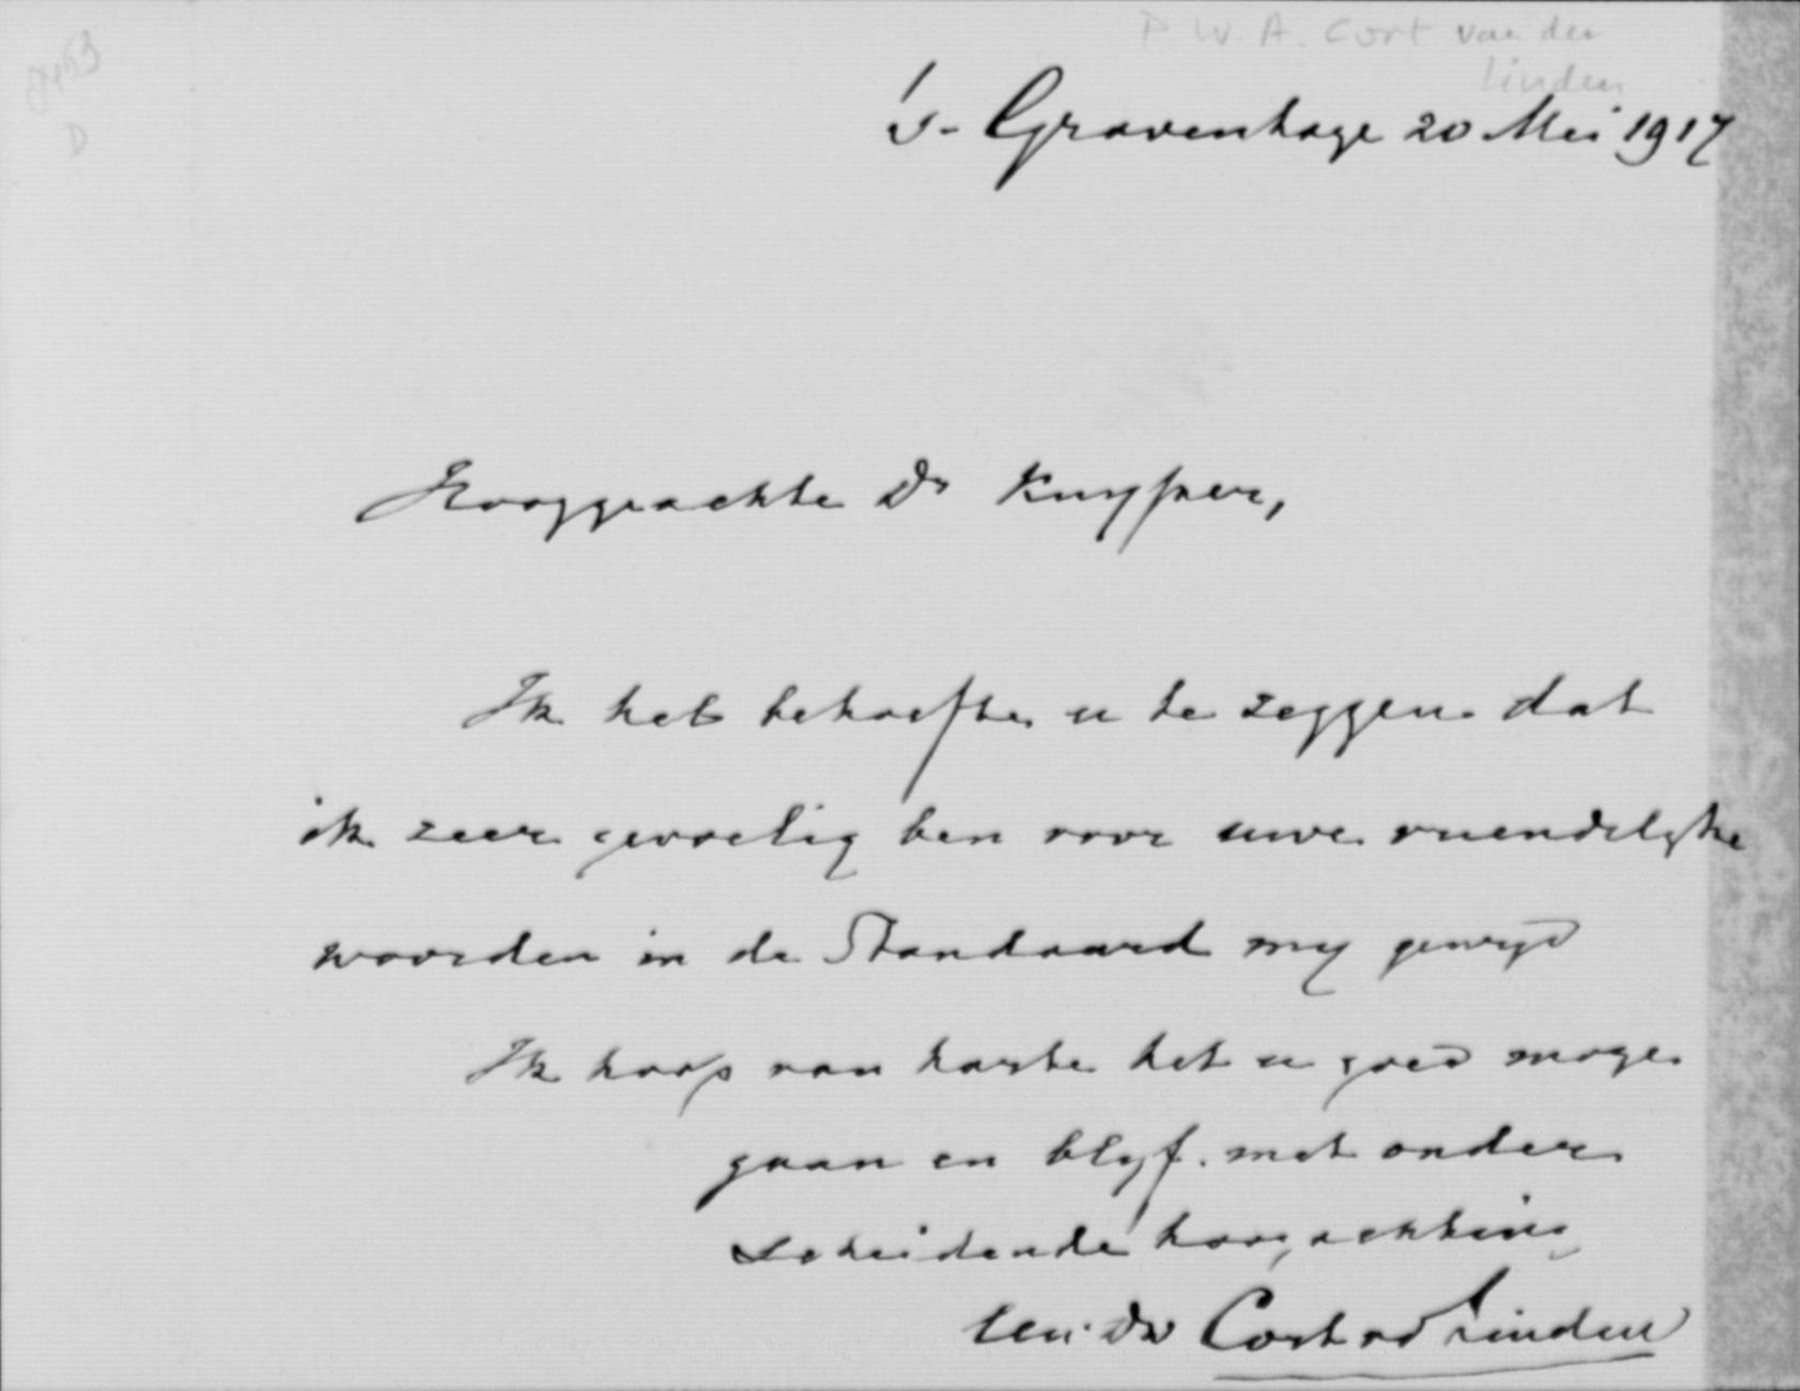 P W. A. Cort van der
linden
's-Gravenhage 20 Mei 1917
Hooggeachte Dr Kuyper,
Ik heb behoefte u te zeggen dat
ik zeer gevoelig ben voor uwe vriendelyke
woorden in de Standaard my gewyd
Ik hoop van harte het u goed moge
gaan en blyf met onder
scheidende hoogachting
Uw Dw Cort vd Linden